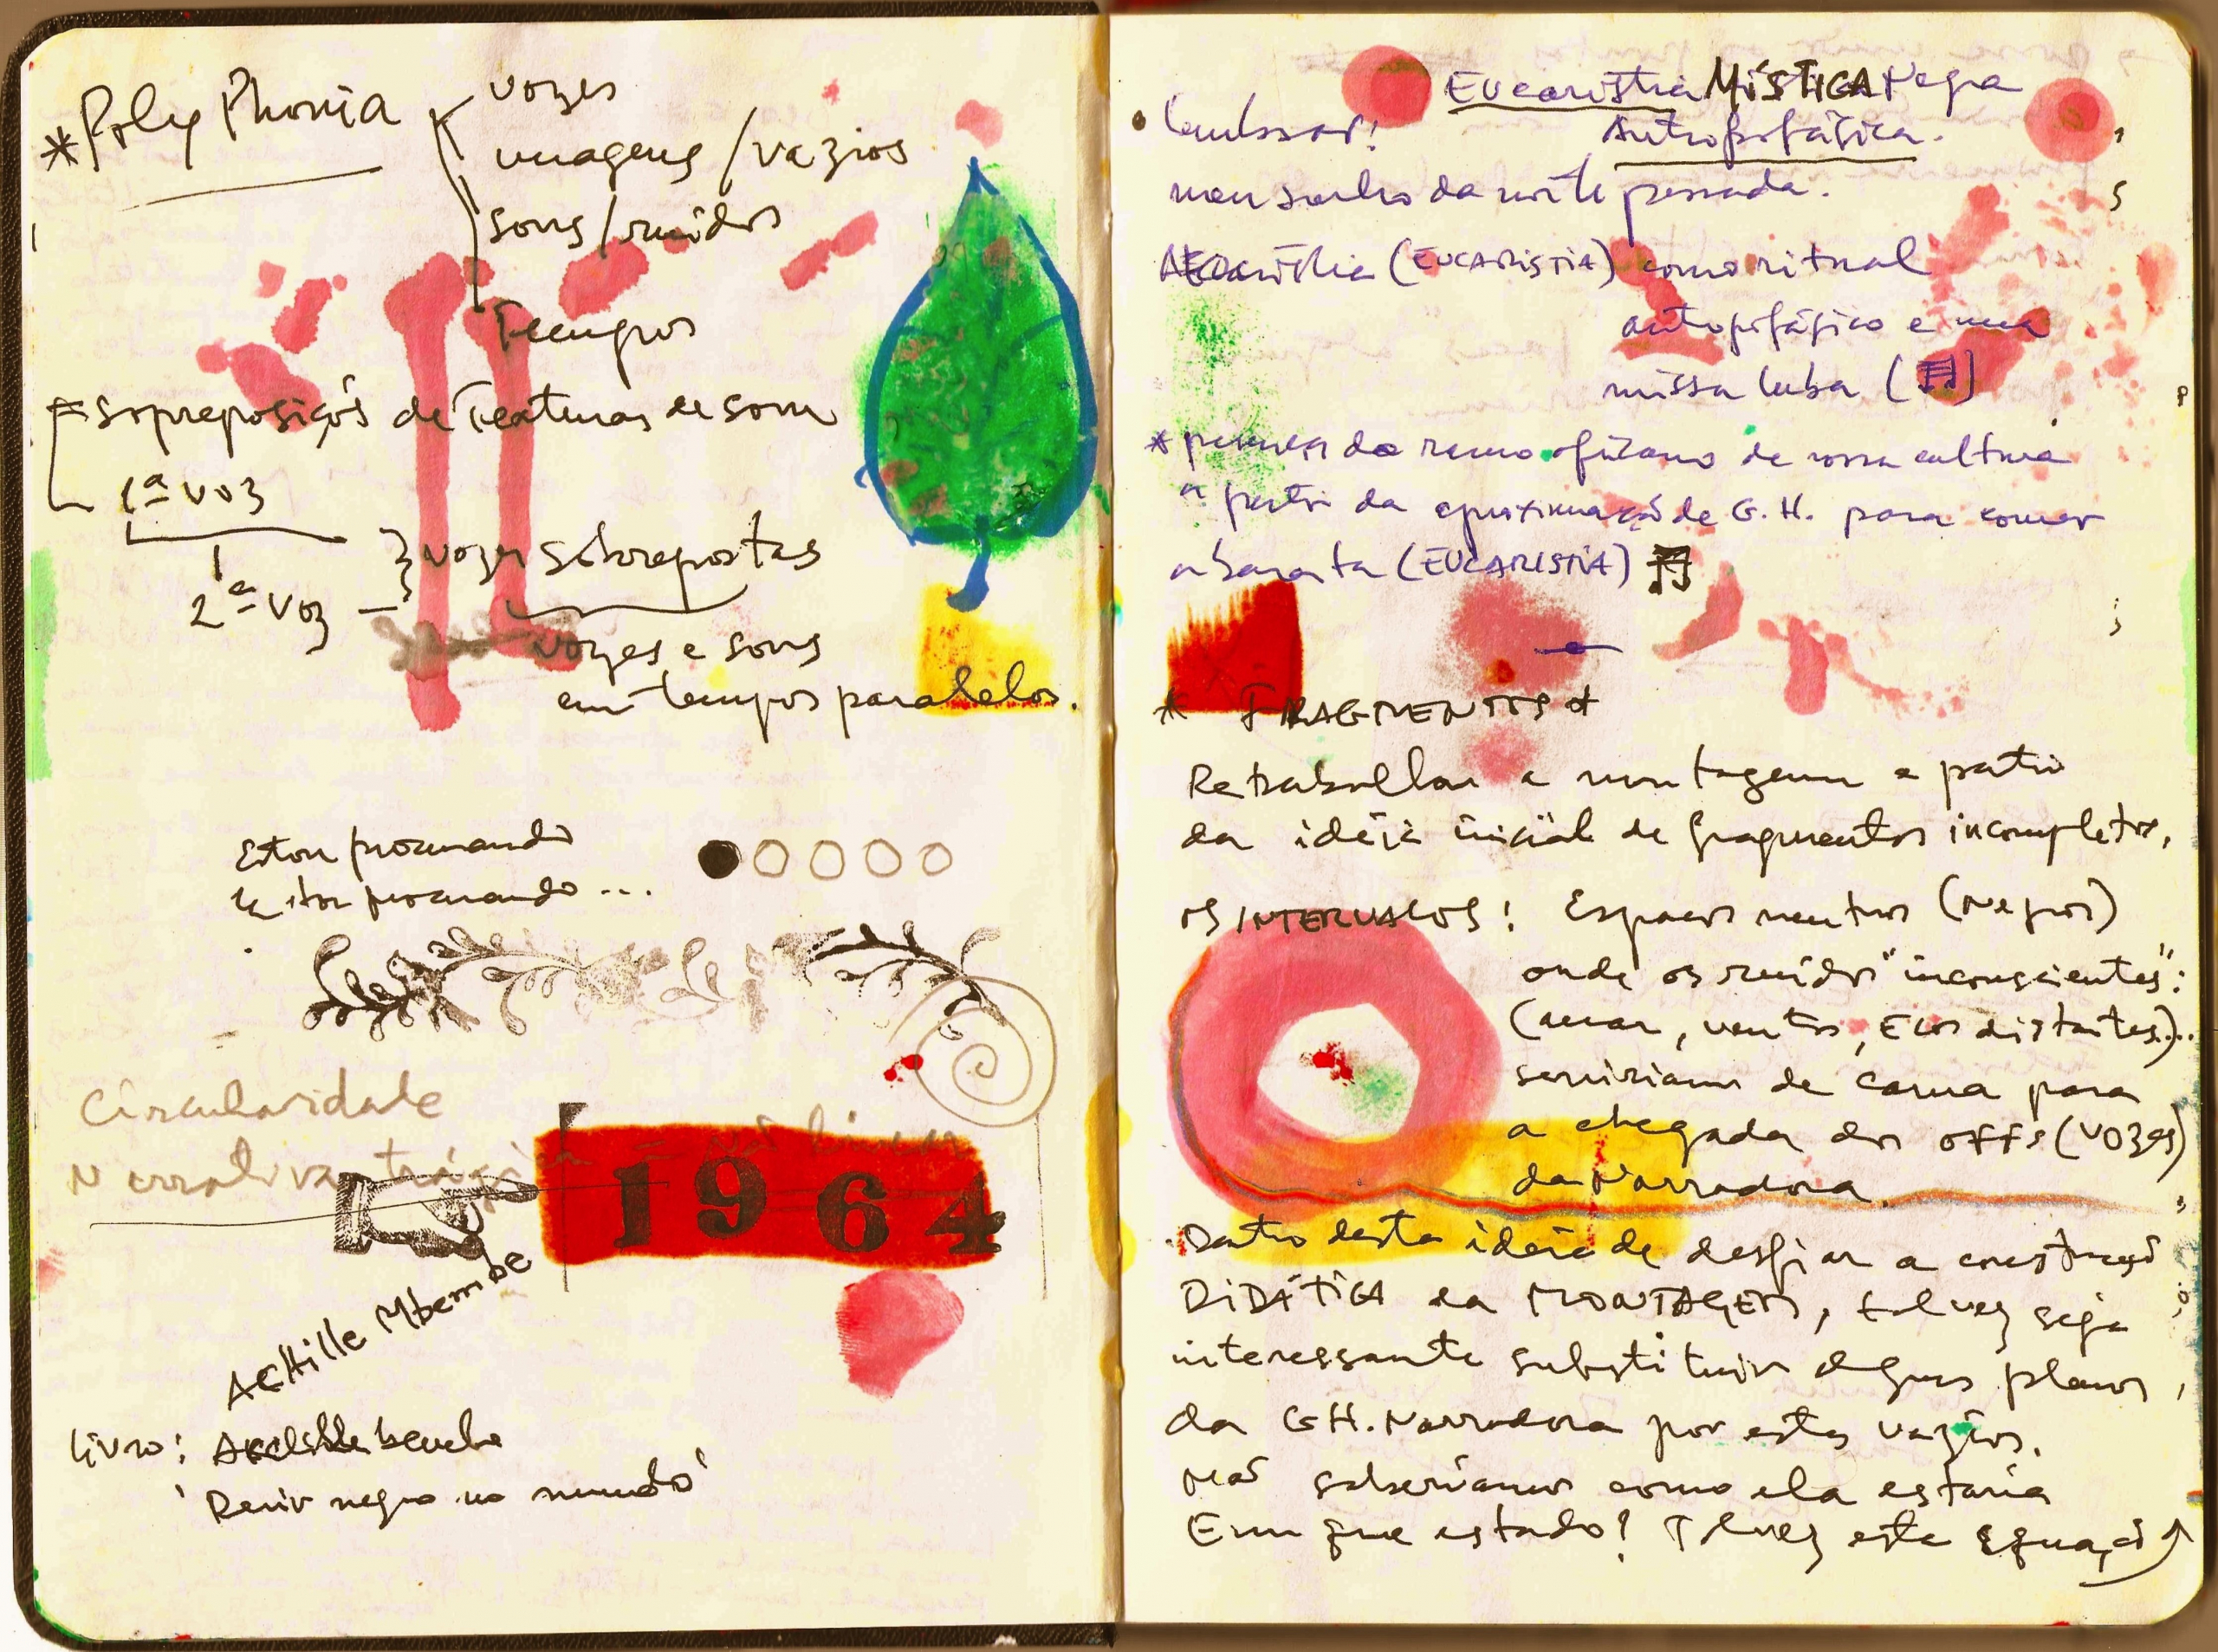 * PolyPhonia
vozes
imagens / vazios
sons / ruídos
Tempos
sopreposição de Texturas de som
1ª voz
2ª voz — } vozes sobrepostas
vozes e sons
em tempos paralelos.
Estou procurando
Estou procurando ...
Circularidade
Narrativa trágica = não linear
1964
Achille Mbembe
livro:
'Devir negro no mundo'
Eucaristia MÍSTICA Negra
Antropofágica.
• Lembrar!
meu sonho da noite passada.
(EUCARISTIA) como ritual
antropofágico e uma
missa luba ( )
* pensar do ramo africano de nossa cultura
a partir da aproximação de G.H. para comer
a barata (EUCARISTIA)
* FRAGMENTOS *
Retrabalhar a montagem a partir
da idéia inicial de fragmentos incompletos,
OS INTERVALOS! Espaços neutros (negros)
onde os ruídos "inconscientes":
(mar, ventos, Ecos distantes)...
serviriam de cama para
a chegada dos offs (vozes)
da Narradora.
Dentro desta idéia de desfiar a construção
DIDÁTICA da MONTAGEM, talvez seja
interessante substituir alguns planos,
da G.H. Narradora por estes vazios.
Não saberíamos como ela estaria
Em que estado! Talvez esta equação